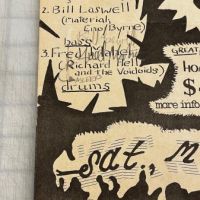 2. Bill Laswell
(Material,
Eno/Byrne)
bass
3. Fred Maher
(Richard Hell
and the Voidoids)
drums
GREAT
ho
$
more info
sat., m